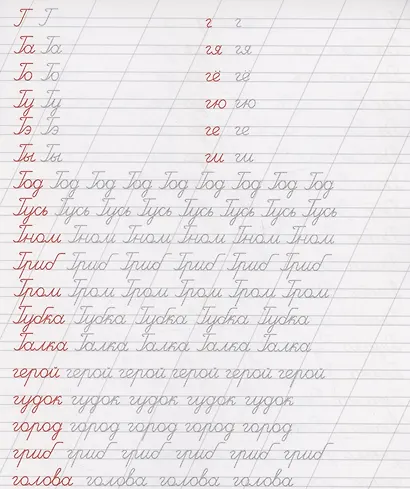 Г Г г г
Га Га гя гя
Го Го гё гё
Гу Гу гю гю
Гэ Гэ ге ге
Гы Гы ги ги
Год Год Год Год Год Год Год Год Год
Гусь Гусь Гусь Гусь Гусь Гусь Гусь Гусь
Гном Гном Гном Гном Гном Гном
Гриб Гриб Гриб Гриб Гриб Гриб
Гром Гром Гром Гром Гром Гром
Губка Губка Губка Губка Губка
Галка Галка Галка Галка Галка
герой герой герой герой герой герой
гудок гудок гудок гудок гудок
город город город город город
гриб гриб гриб гриб гриб гриб
голова голова голова голова